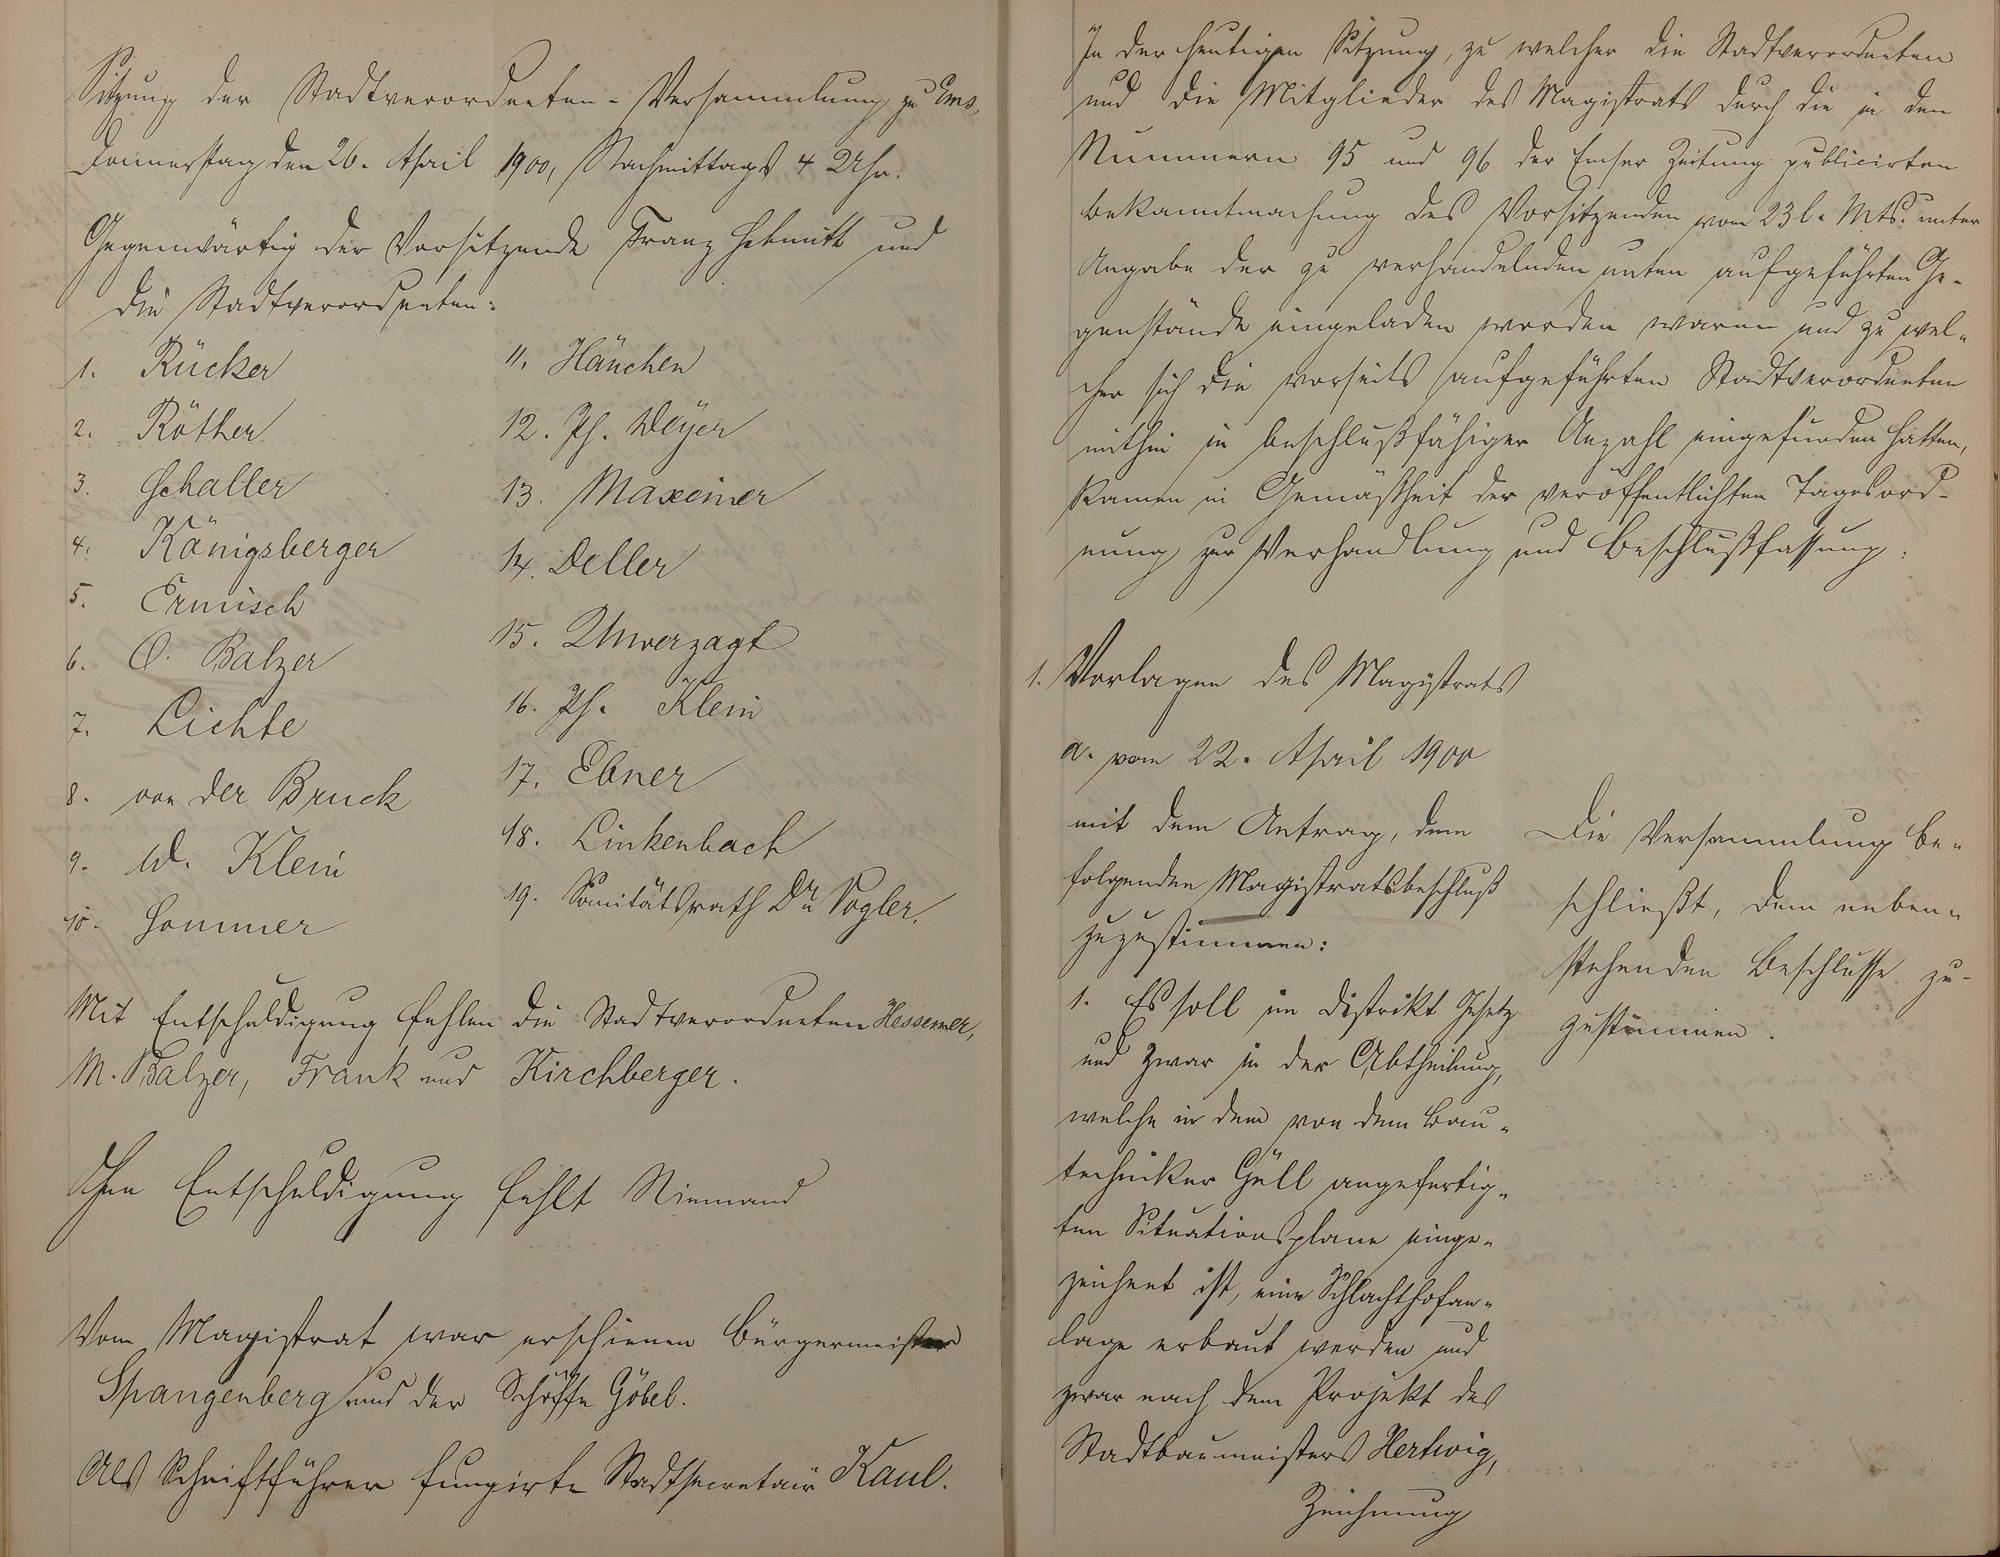 Sitzung der Stadtverordneten-Versammlung zu Ems,
Donnerstag den 26. April 1900, Nachmittags 4 Uhr.
Gegenwärtig der Vorsitzende Franz Schmitt und
die Stadtverordneten:
1. Rücker
2. Röther
3. Schaller
4. Königsberger
5. Ermisch
6. O. Balzer
7. Lichte
8. von der Bruck
9. W. Klein
10. Sommer
11. Hänchen
12. Ph. Weyer
13. Maxeiner
14. Deller
15. Unverzagt
16. Ph. Klein
17. Ebner
18. Linkenbach
19. Sanitätsrath Dr. Vogler.
Mit Entschuldigung fehlen die Stadtverordneten Hessemer,
M. Balzer, Frank und Kirchberger.
Ohne Entschuldigung fehlt Niemand
Vom Magistrat war erschienen Bürgermeister
Spangenberg und der Schöffe Göbel.
Als Schriftführer fungirte Stadtsecretair Kaul.
In der heutigen Sitzung, zu welcher die Stadtverordneten
und die Mitglieder des Magistrats durch die in den
Nummern 95 und 96 der Emser Zeitung publicirten
Bekanntmachung des Vorsitzenden vom 23 l. Mts. unter
Angabe der zu verhandelnden unten aufgeführten Ge-
genstände eingeladen worden waren und zu wel-
cher sich die vorseits aufgeführten Stadtverordneten
mithin in beschlußfähiger Anzahl eingefunden hatten,
kamen in Gemäßheit der veröffentlichten Tagesord-
nung zur Verhandlung und Beschlußfassung:
1. Vorlagen des Magistrats
a. vom 22. April 1900
mit dem Antrag, dem
folgenden Magistratsbeschluß
zuzustimmen:
1. Es soll im Distrikt
und zwar in der Abtheilung,
welche in dem von dem Bau-
techniker Güll angefertig-
ten Situationsplane einge-
zeichnet ist, eine Schlachthofan-
lage erbaut werden und
zwar nach dem Projekt des
Stadtbaumeisters Hertwig,
Zeichnung
Die Versammlung be-
schließt, dem neben-
stehenden Beschlusse zu-
zustimmen.